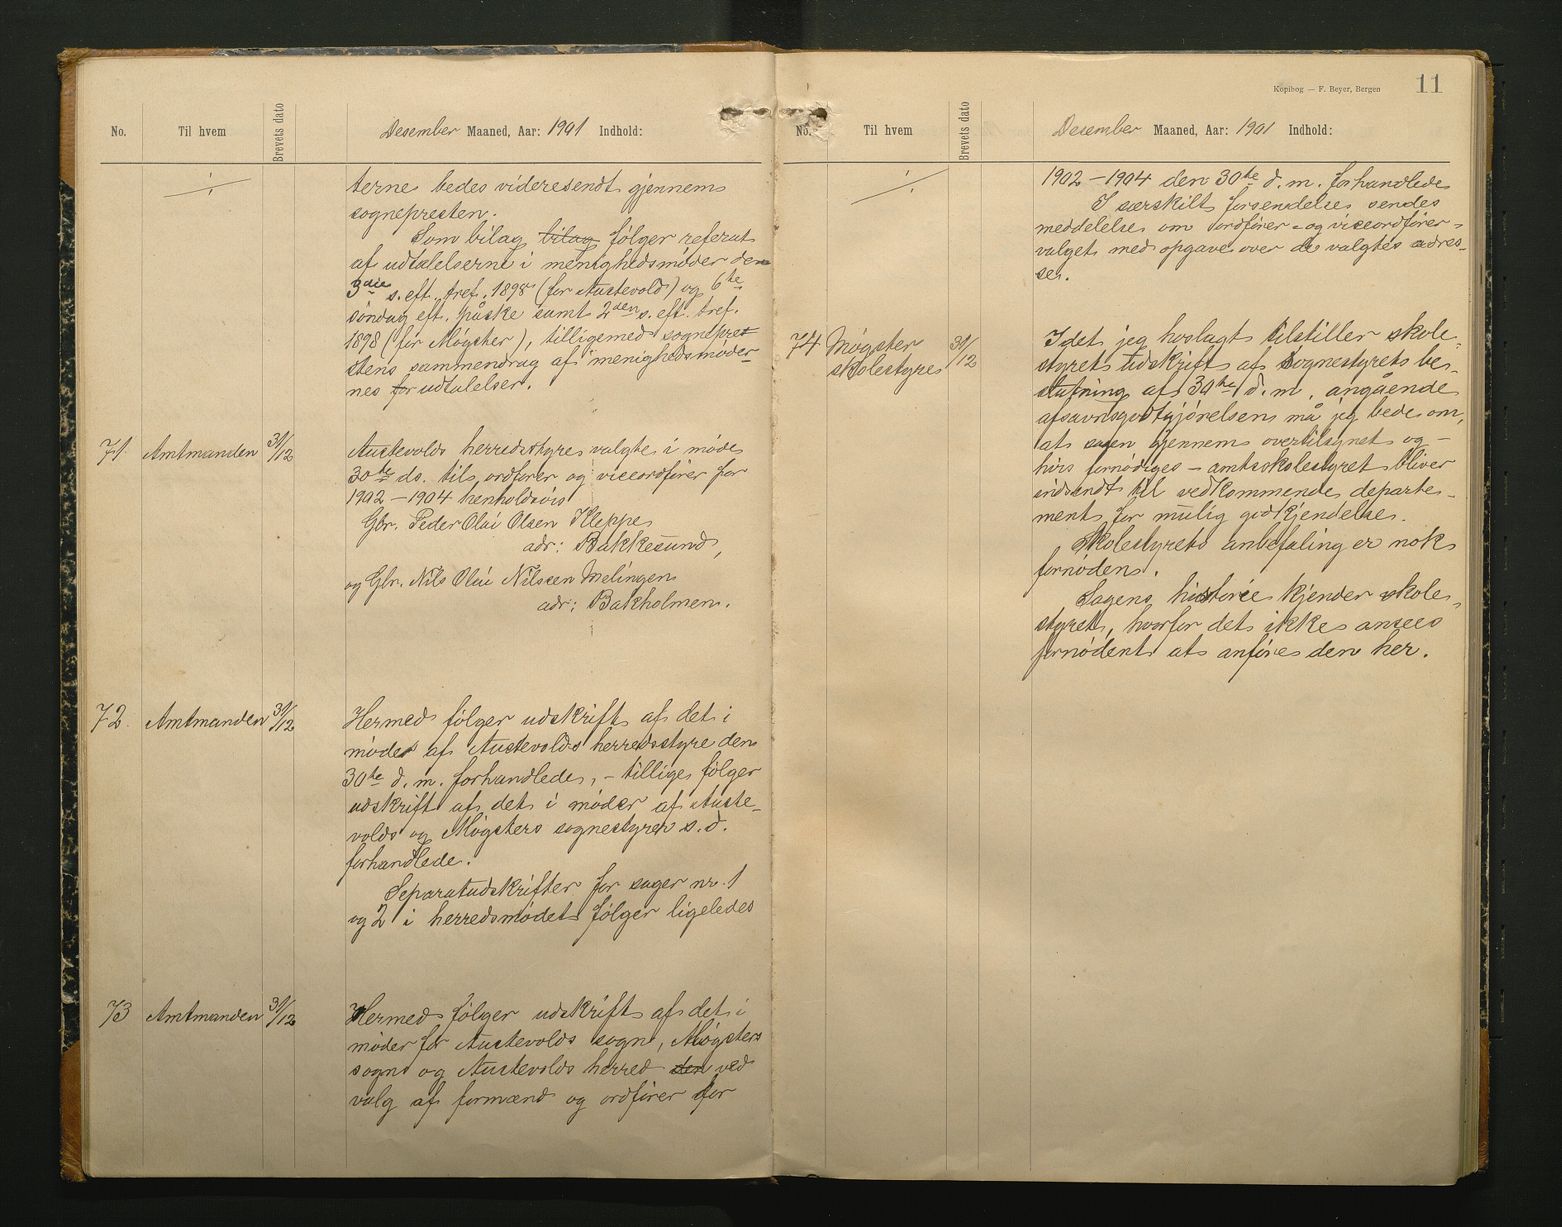 No. Til hvem Brevets dato Desember Maaned, Aar: 1901 Indhold:
terne bedes videresendt gjennem
sognepresten.
Som bilag bilag følger referat
af udtalelserne i menighedsmøder den
3die s. eft. tref. 1898 (for Austevold) og 6te
søndag eft. påske samt 2den s. eft. tref.
1898 (for Møgster), tilligemed sognepre-
stens sammendrag af menighedsmøder
nes for udtalelser.
71. Amtmanden 31/12 Austevolds herredsstyre valgte i møde
30te ds. til ordfører og viceordfører for
1902 – 1904 henholdsvis
Gbr. Peder Olai Olsen Kleppe
adr: Bakkesund,
og Gbr. Nils Olai Nilssen Melingen
adr: Bakholmen.
72. Amtmanden 31/12 Hermed følger udskrift af det i
møder af Austevolds herredsstyre den
30te d. m. forhandlede, – tillige følger
udskrift af det i møder af Auste-
volds og Møgsters sognestyrer s. d.
forhandlede.
Separatudskrifter for sager nr. 1
og 2 i herredsmødet følger ligeledes
73 Amtmanden 31/12 Hermed følger udskrift af det i
møder for Austevolds sogn, Møgsters
sogn og Austevolds herred den ved
valg af formænd og ordfører for
Kopibog — F. Beyer, Bergen 11
No. Til hvem Brevets dato Desember Maaned, Aar: 1901 Indhold:
1902 – 1904 den 30te d. m. forhandlede
I særskilt forsendelse sendes
meddelelse om ordfører- og viceordfører-
valget med opgave over de valgtes adres-
se.
74 Møgster 31/12 Idet jeg hoslagt tilstiller skole-
skolestyre styret udskrift af Sognestyrets be-
slutning af 30te d. m. angående
afsavnsgodtgjørelsen må jeg bede om,
at sagen gjennem overtilsynet og –
hvis fornødiges – amtsskolestyret bliver
indsendt til vedkommende departe-
ment for mulig godkjendelse.
Skolestyrets anbefaling er nok
fornøden.
Sagens historie kjender skole-
styret, hvorfor det ikke ansees
fornødent at anføre den her.